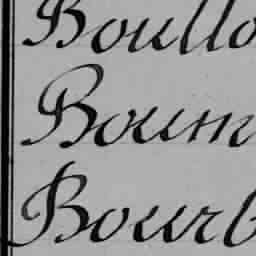 Boullo
Boum
Bourb